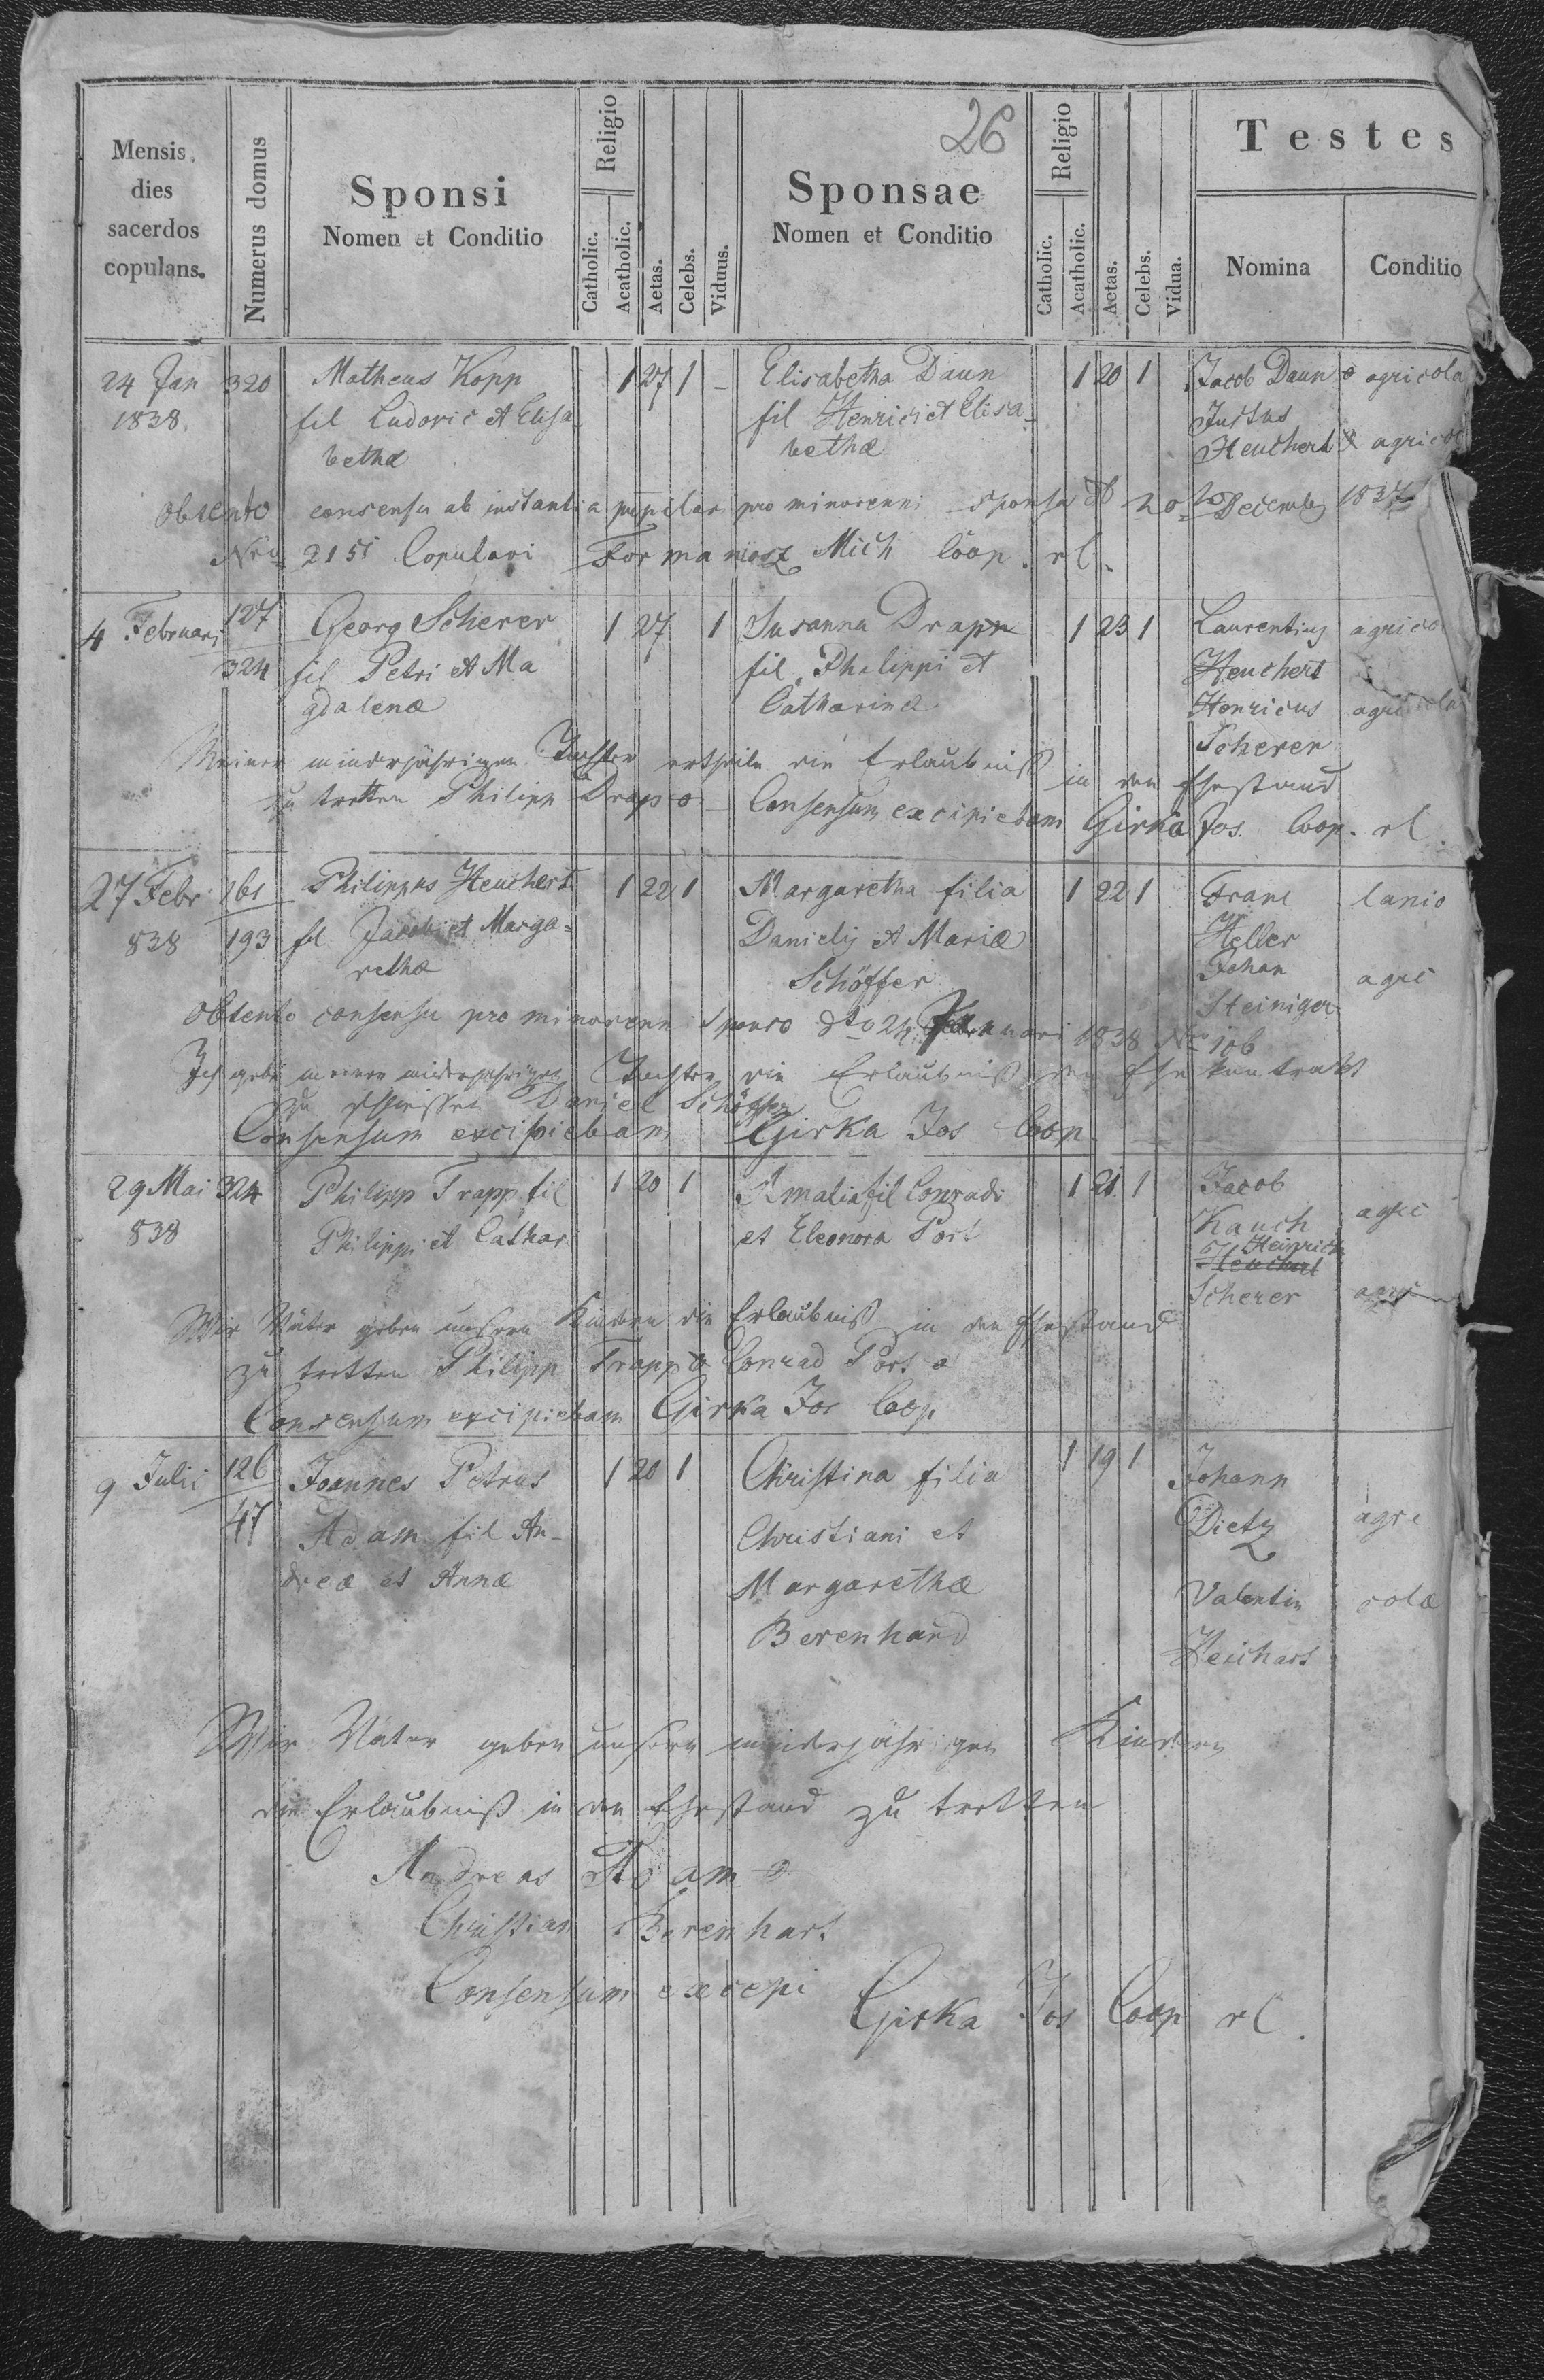 26
Mensis. dies sacerdos copulans.
Numerus domus
Sponsi
Nomen et Conditio
Religio
Catholic.
Acatholic.
Aetas.
Celebs.
Viduus.
Sponsae
Nomen et Conditio
Religio
Catholic.
Acatholic.
Aetas.
Celebs.
Vidua.
Testes
Nomina
Conditio
24 Jan 320 Matheus Kopp 1 27 1 – Elisabetha Daun 1 20 1 Jacob Daun o agricola
1838. fil Ludovic et Elisa fil Henrici et Elisa- Justus
bethæ bethæ Heuchert x agricol
Obtento consensu ab instantia pupilari pro minorenni sponsa 20 Decemb 1837
Nro 2151 Copulavi Formaniosz Mich Coop. rl.
4 Februari 127 Georg Scherer 1 27 1 Susanna Drapp 1 23 1 Laurentius agrico
324 fil Petri et Ma fil. Philippi et Heuchert
gdalenæ Catharinæ Henricus agricola
Scherer
Meiner minderjährigen Tochter ertheile die Erlaubniß in den Ehestand
zu tretten Philipp Drap o Consensum excipiebam Girka Jos. Coop. rl.
27 Febr 161 Philippus Heuchert 1 22 1 Margaretha filia 1 22 1 Franc lanio
838 193 fil Jacobi et Marga= Danielis et Mariæ Heller
rethæ Schöffer Johan agric
Steiniger
Obtento consensu pro minorenn sponso dto 24 Februari 1838 No 106
Ich gebe meiner minderjährigen Tochter die Erlaubniß den Ehe kontrakt
zu schliessen Daniel Schöffer
Consensum excipiebam Girka Jos Coop.
29 Mai 324 Philipp Trapp fil 1 20 1 Amalia fil Conradi 1 21 1 Jacob
838 Philippi et Cathar et Eleonora Port Kauch agric
Heinrich
Heuchert
Scherer agri
Wir Väter geben unsern Kindern die Erlaubniß in den Ehestand
zu tretten Philipp Trapp o Conrad Port o
Consensum excipiebam Girka Jos Coop
9 Julii 126 Joannes Petrus 1 20 1 Christina filia 1 19 1 Johann
47 Adam fil An- Christiani et Dietz agri
dreæ et Annæ Margarethæ Valentin colæ
Berenhard Heichart
Wir Väter geben unsern minderjährigen Kindern
die Erlaubniß in den Ehestand zu tretten
Andreas Adam o
Christian Berenhart
Consensum excepi Girka Jos Coop rl.